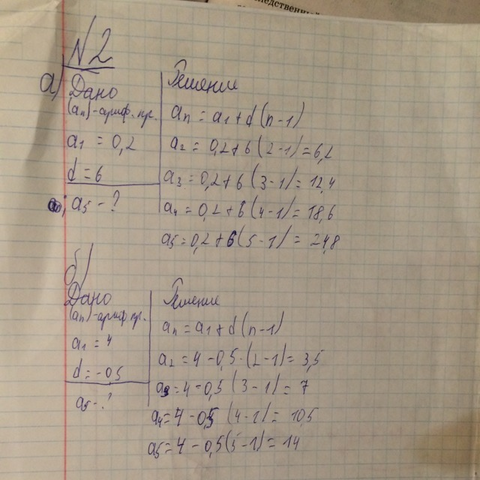 N2
а) Дано
(an) - ариф. пр.
a1 = 0,2
d = 6
a5 - ?
Решение
an = a1 + d(n-1)
a2 = 0,2 + 6(2-1) = 6,2
a3 = 0,2 + 6(3-1) = 12,4
a4 = 0,2 + 6(4-1) = 18,6
a5 = 0,2 + 6(5-1) = 24,8
б)
Дано
(an) - ариф. пр.
a1 = 4
d = -0,5
a5 - ?
Решение
an = a1 + d(n-1)
a2 = 4 - 0,5 · (2-1) = 3,5
a3 = 4 - 0,5 (3-1) = 7
a4 = 4 - 0,5 (4-1) = 10,5
a5 = 4 - 0,5 (5-1) = 14